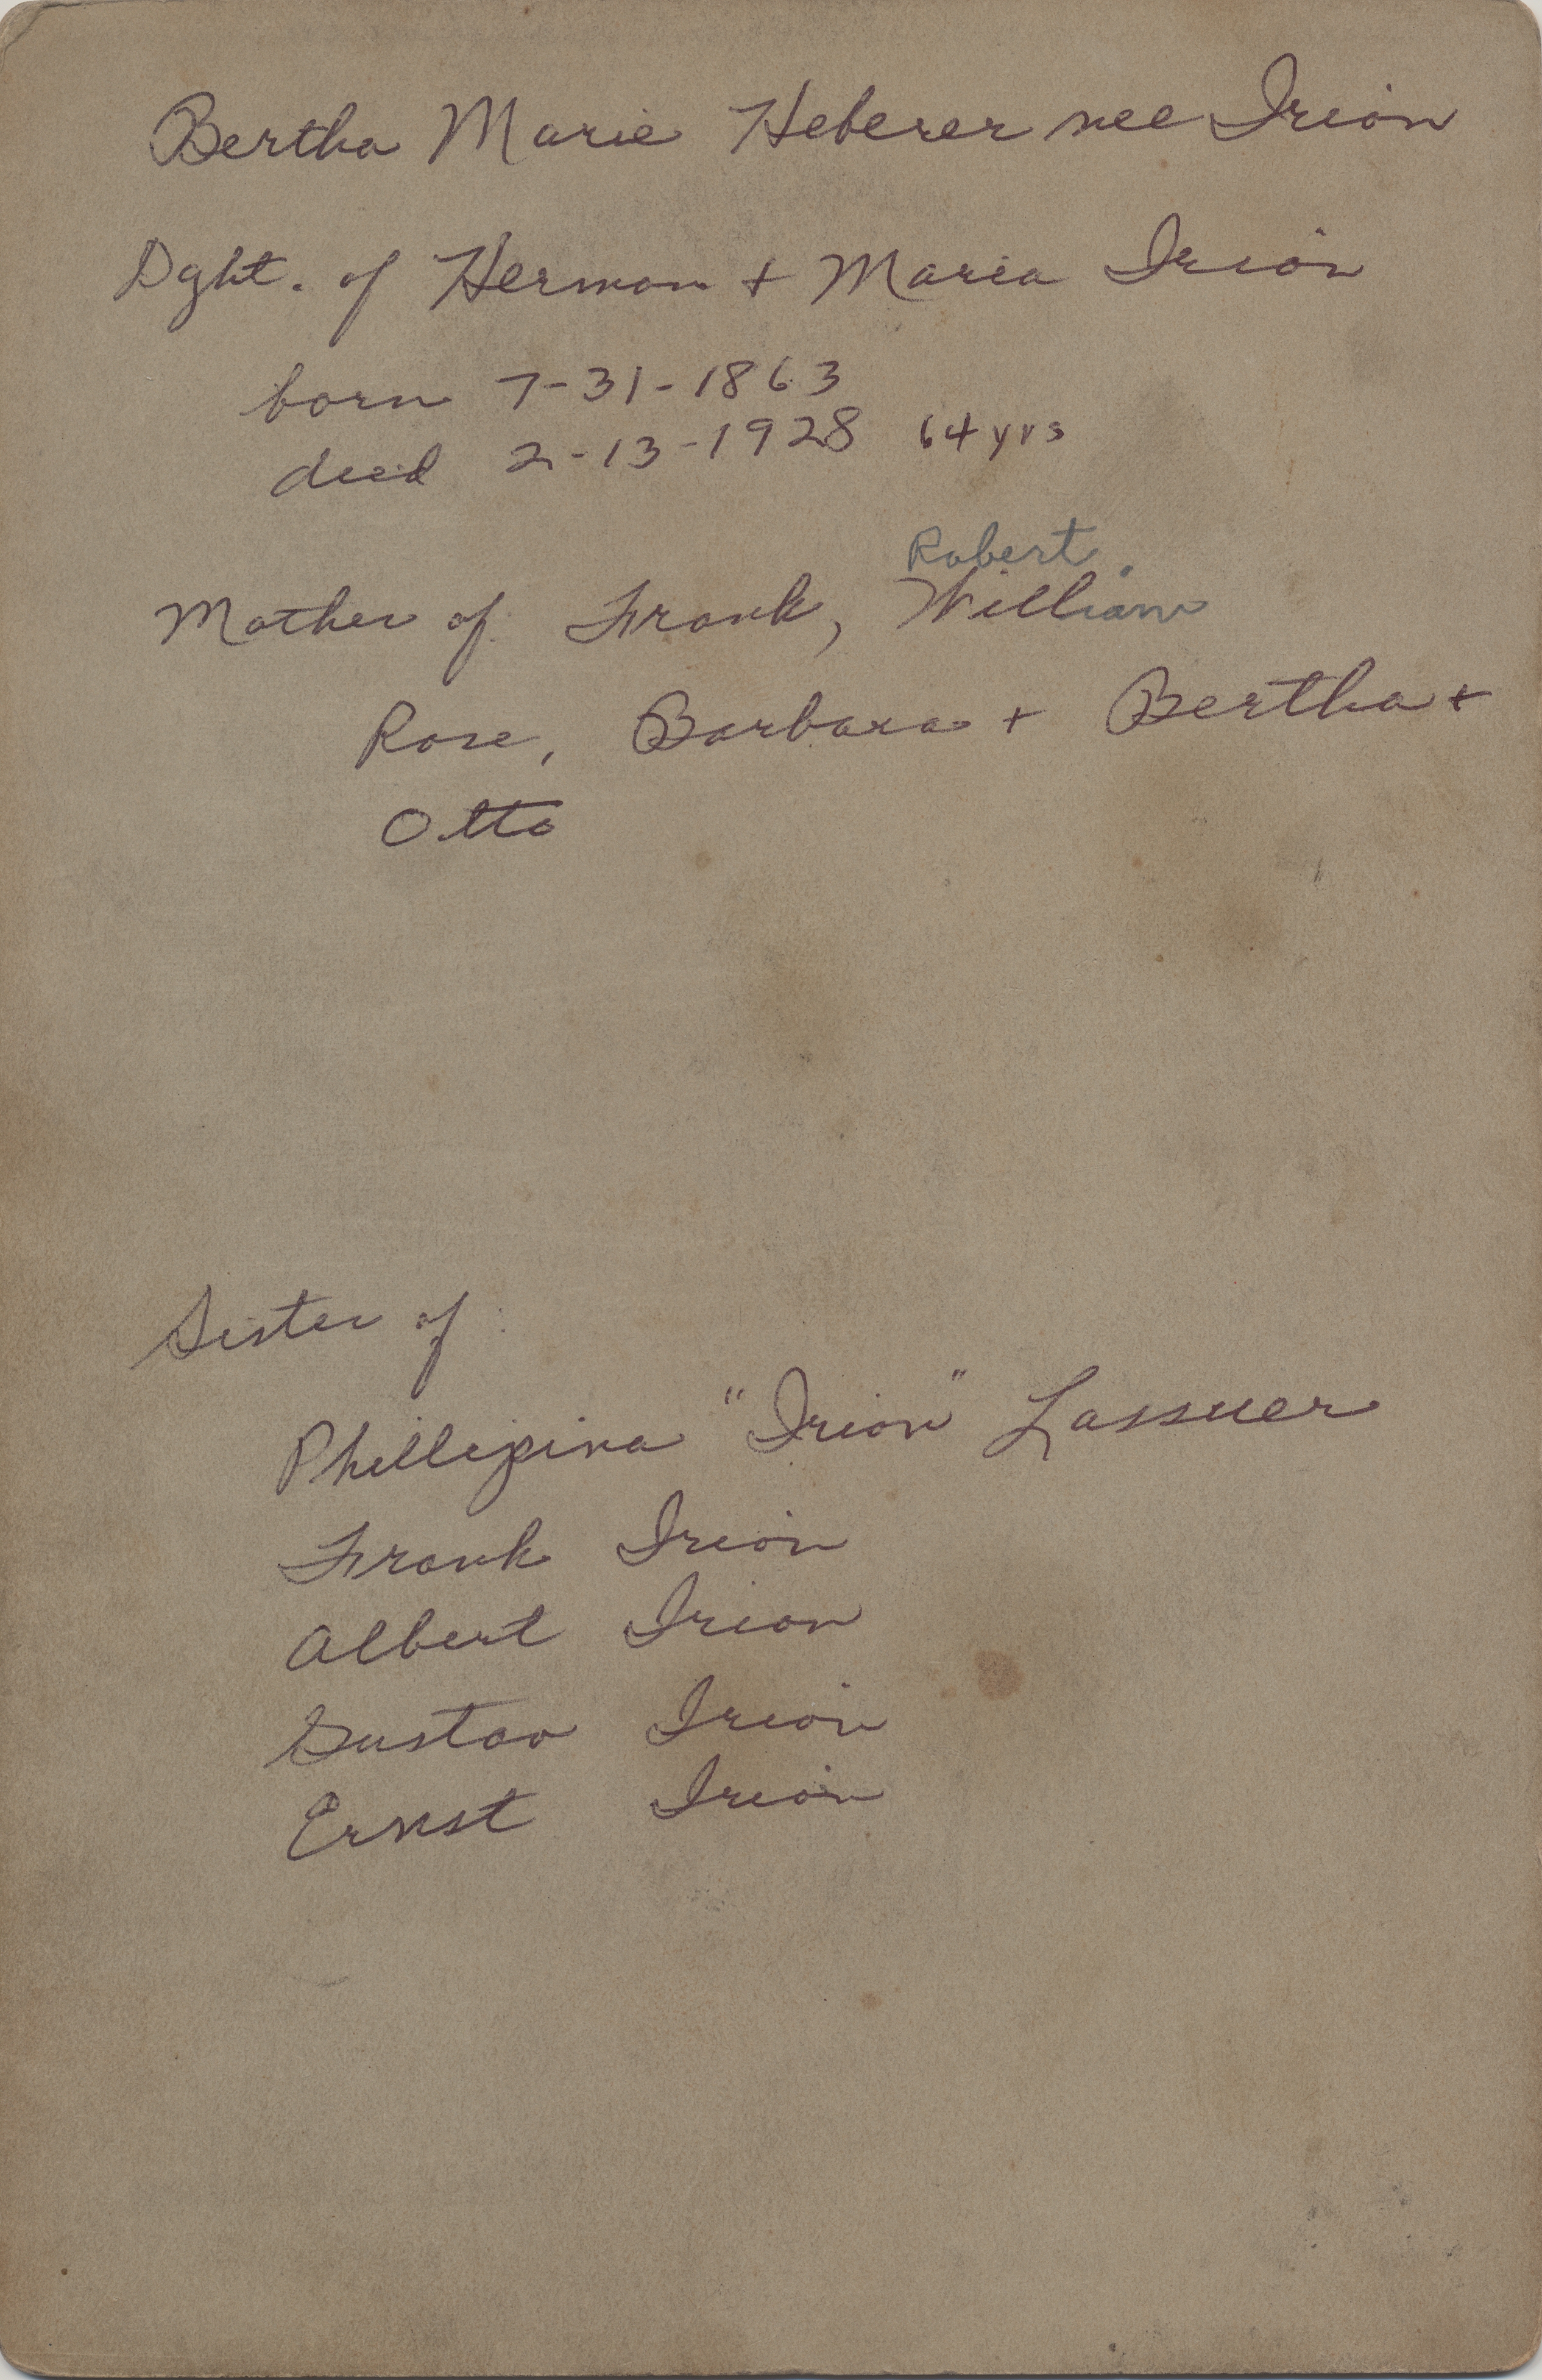 Bertha Marie Heberer nee Irion
Dght. of Herman + Maria Irion
born 7-31-1863
died 2-13-1928 64 yrs
Robert
Mother of Frank, William
Rose, Barbara + Bertha +
Otto
Sister of:
Phillipina "Irion" Lassuer
Frank Irion
Albert Irion
Gustav Irion
Ernst Irion